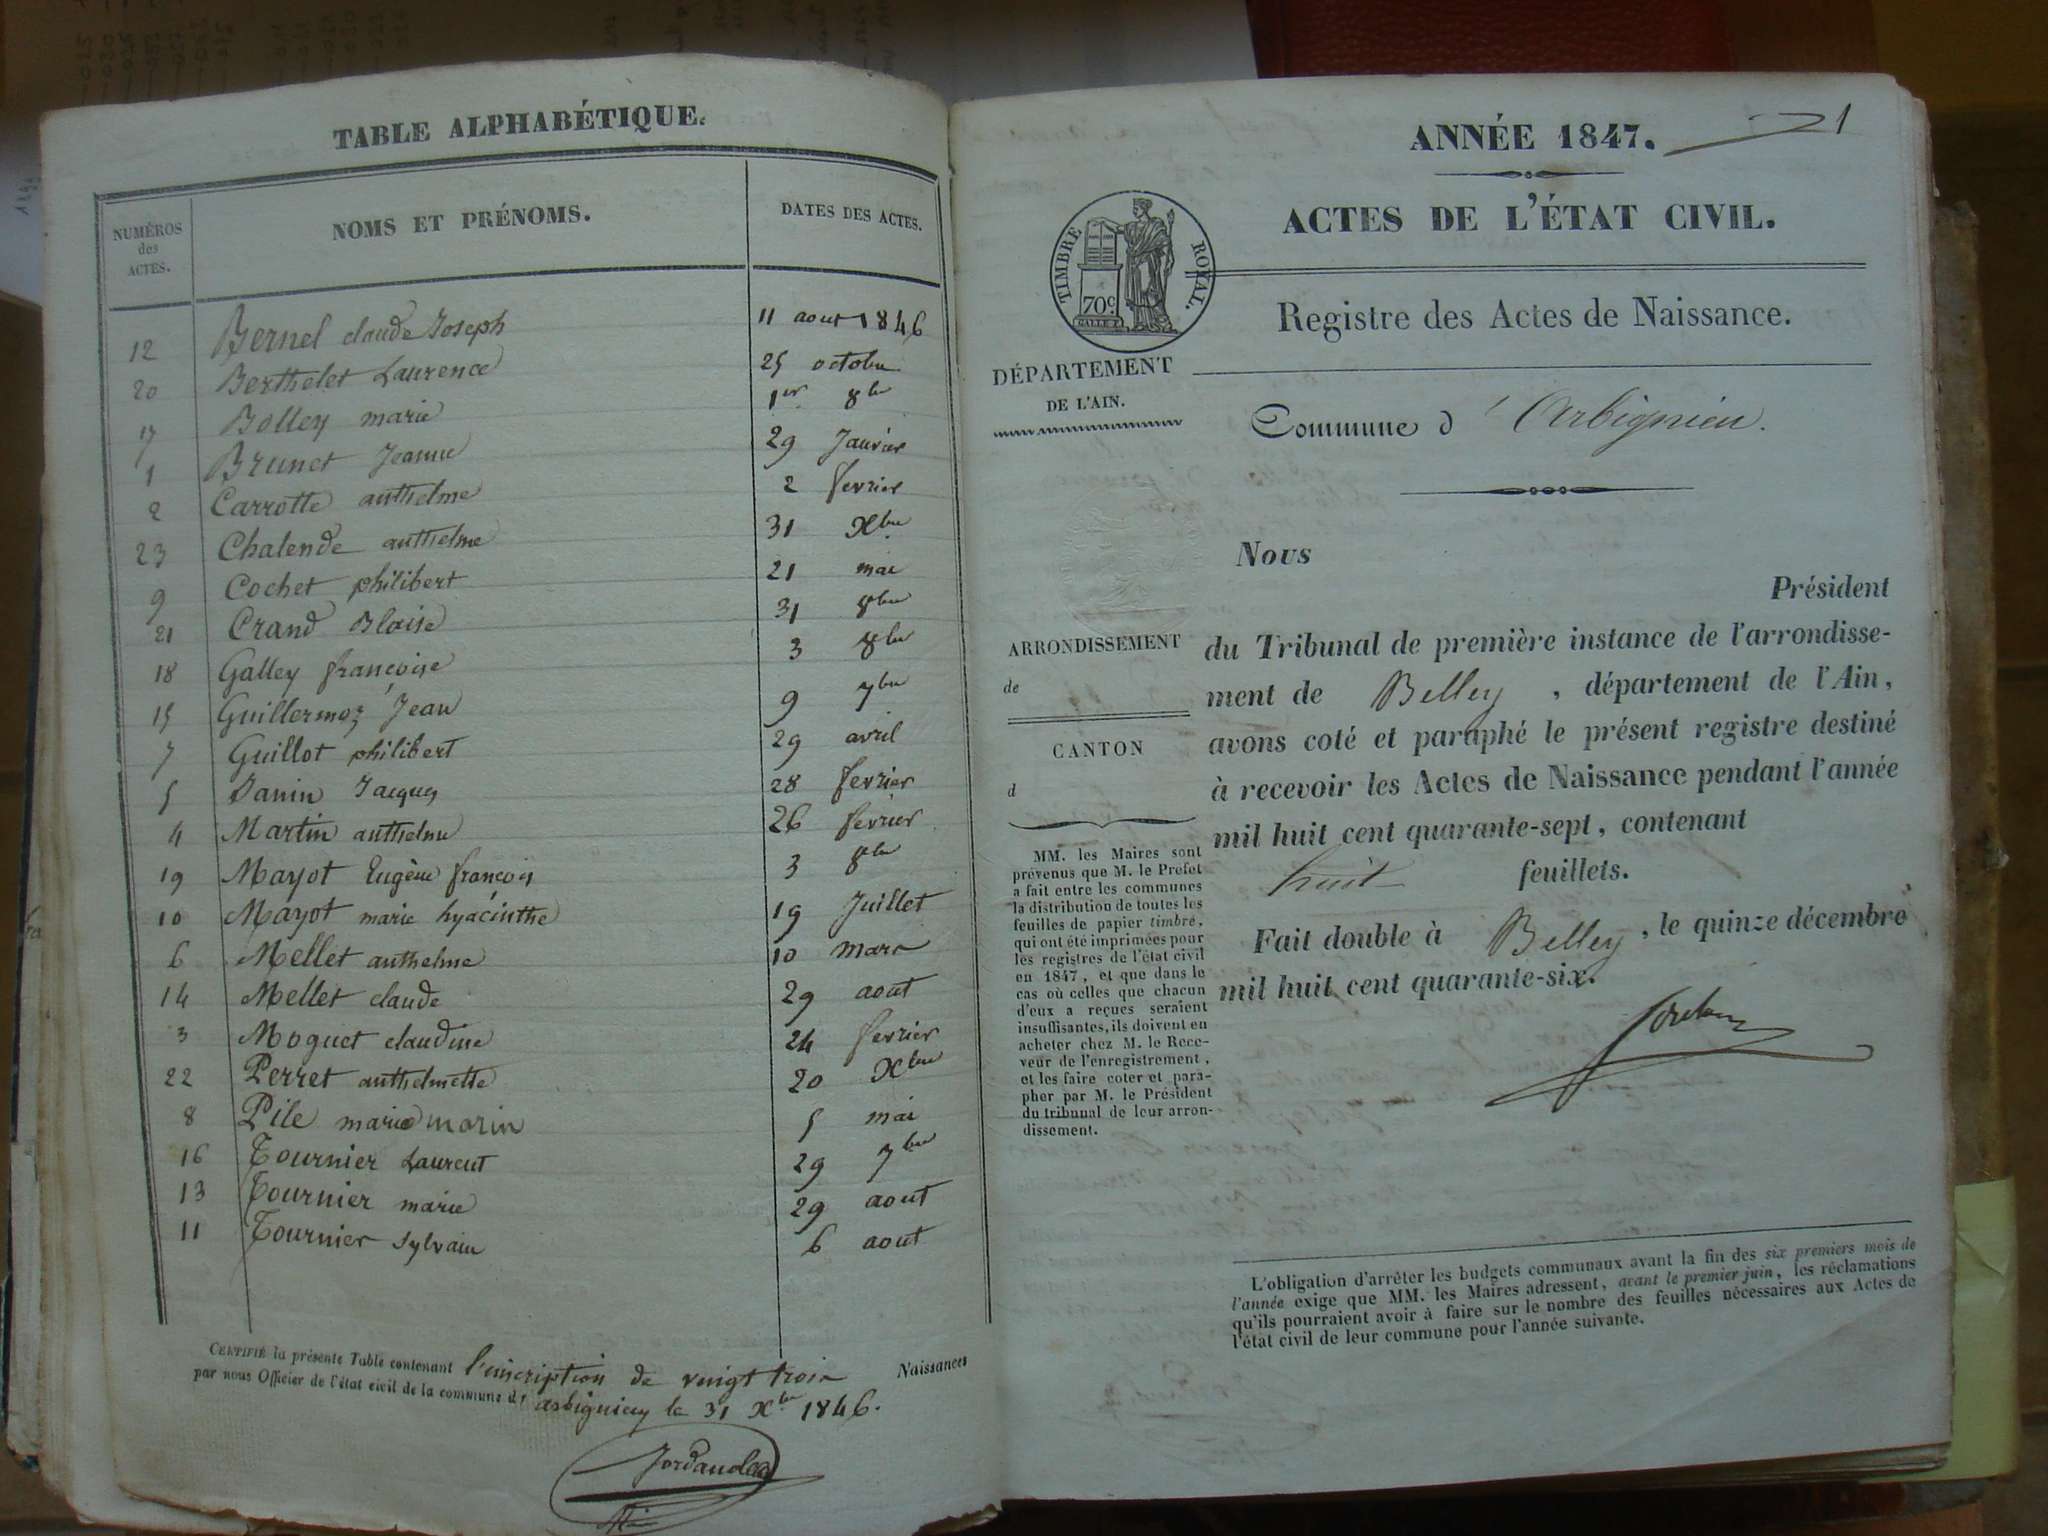 TABLE ALPHABÉTIQUE.
NUMÉROS des ACTES.
NOMS ET PRÉNOMS.
DATES DES ACTES.
12 Bernel claude Joseph 11 aout 1846
20 Berthelet Laurence 25 octobre
17 Bolley marie 1er 8bre
1 Brunet Jeanne 29 Janvier
2 Carrotte anthelme 2 fevrier
23 Chalende anthelme 31 Xbre
9 Cochet philibert 21 mai
21 Crand Blaise 31 8bre
18 Galley françoise 3 8bre
15 Guillermoz Jean 9 7bre
7 Guillot philibert 29 avril
5 Janin Jacques 28 fevrier
4 Martin anthelme 26 fevrier
19 Mayot Eugène françois 3 8bre
10 Mayot marie hyacinthe 19 Juillet
6 Mellet anthelme 10 mars
14 Mellet claude 29 aout
3 Moguet claudine 24 fevrier
22 Perret anthelmette 20 Xbre
8 Pile marie marin 5 mai
16 Tournier Laurent 29 7bre
13 Tournier marie 29 aout
11 Tournier Sylvain 6 aout
CERTIFIÉ la présente Table contenant l'inscription de vingt trois Naissances
par nous Officier de l'état civil de la commune d' arbignieu le 31 Xbre 1846.
ANNÉE 1847. 1
ACTES DE L'ÉTAT CIVIL.
TIMBRE ROYAL.
70c
Registre des Actes de Naissance.
DÉPARTEMENT
DE L'AIN.
Commune d'Arbignieu.
Nous
Président
ARRONDISSEMENT
de
CANTON
d
du Tribunal de première instance de l'arrondisse-
ment de Belley, département de l'Ain,
avons coté et paraphé le présent registre destiné
à recevoir les Actes de Naissance pendant l'année
mil huit cent quarante-sept, contenant
huit feuillets.
Fait double à Belley, le quinze décembre
mil huit cent quarante-six.
MM. les Maires sont
prévenus que M. le Préfet
a fait entre les communes
la distribution de toutes les
feuilles de papier timbré,
qui ont été imprimées pour
les registres de l'état civil
en 1847, et que dans le
cas où celles que chacun
d'eux a reçues seraient
insuffisantes, ils doivent en
acheter chez M. le Rece-
veur de l'enregistrement,
et les faire coter et para-
pher par M. le Président
du tribunal de leur arron-
dissement.
L'obligation d'arrêter les budgets communaux avant la fin des six premiers mois de
l'année exige que MM. les Maires adressent, avant le premier juin, les réclamations
qu'ils pourraient avoir à faire sur le nombre des feuilles nécessaires aux Actes de
l'état civil de leur commune pour l'année suivante.